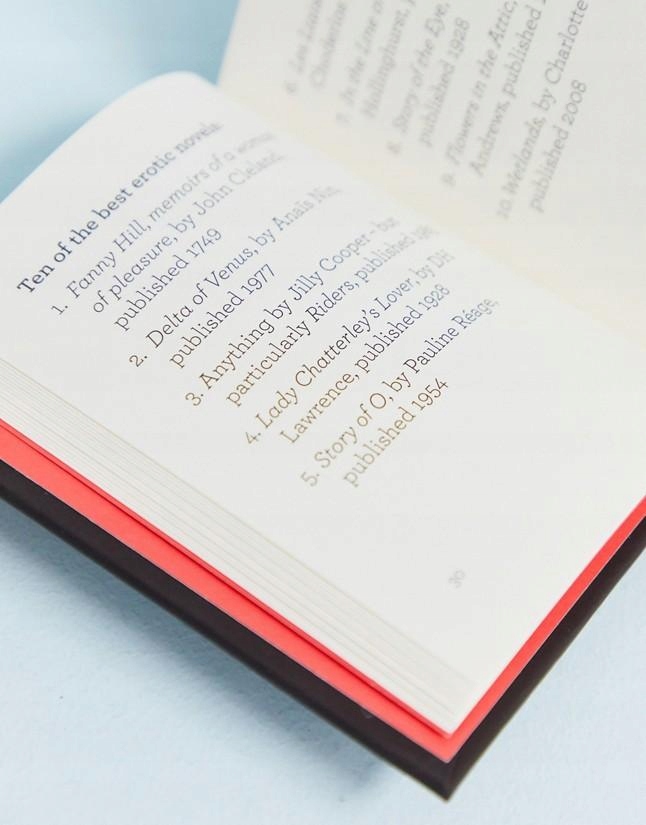 Ten of the best erotic novels
1. Fanny Hill, memoirs of a woman
of pleasure, by John Cleland,
published 1749
2. Delta of Venus, by Anaïs Nin,
published 1977
3. Anything by Jilly Cooper - but
particularly Riders, published
4. Lady Chatterley's Lover, by DH
Lawrence, published 1928
5. Story of O, by Pauline Réage,
published 1954
30
6. Les
7. In the Line of
Hollinghurst,
8. Story of the Eye,
published 1928
9. Flowers in the Attic,
Andrews, published
10. Wetlands, by Charlotte
published 2008